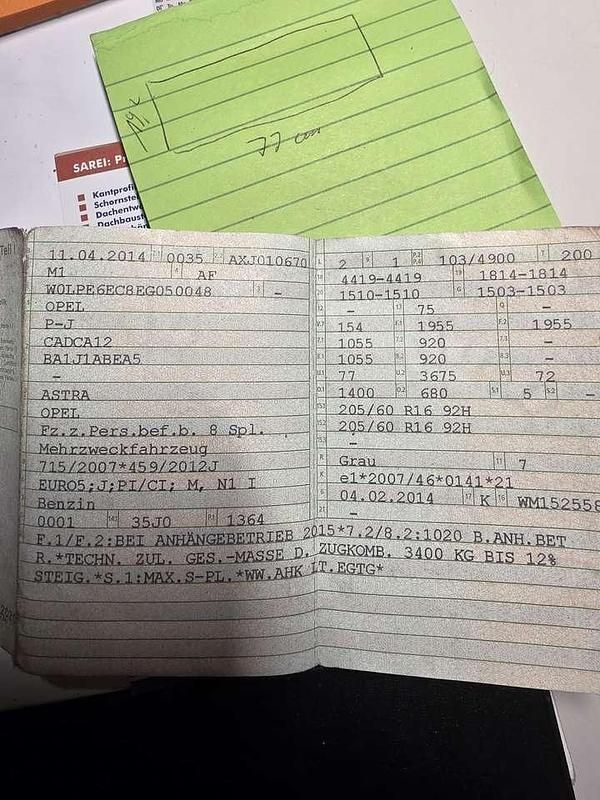 77 cm
SAREI:
Kantprofi
Schornste
Dachentw
Dachbaust
11.04.2014 0035 AXJ010670
M1 AF
W0LPE6EC8EG050048 -
OPEL
P-J
CADCA12
BA1J1ABEA5
-
ASTRA
OPEL
Fz.z.Pers.bef.b. 8 Spl.
Mehrzweckfahrzeug
715/2007*459/2012J
EURO5;J;PI/CI; M, N1 I
Benzin
0001 35J0 1364
L 2 9 1 P.2 P.4 103/4900 T 200
4419-4419 1814-1814
1510-1510 G 1503-1503
- 75 -
154 1955 1955
1055 920 -
1055 920 -
77 3675 72
1400 680 5 -
205/60 R16 92H
205/60 R16 92H
-
R Grau 11 7
K e1*2007/46*0141*21
6 04.02.2014 17 K 16 WM152558
21 -
F.1/F.2:BEI ANHÄNGEBETRIEB 2015*7.2/8.2:1020 B.ANH.BET
R.*TECHN. ZUL. GES.-MASSE D. ZUGKOMB. 3400 KG BIS 12%
STEIG.*S.1:MAX.S-PL.*WW.AHK LT.EGTG*